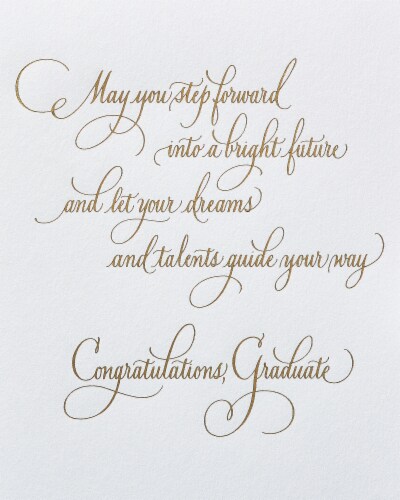 May you step forward
into a bright future
and let your dreams
and talents guide your way
Congratulations, Graduate